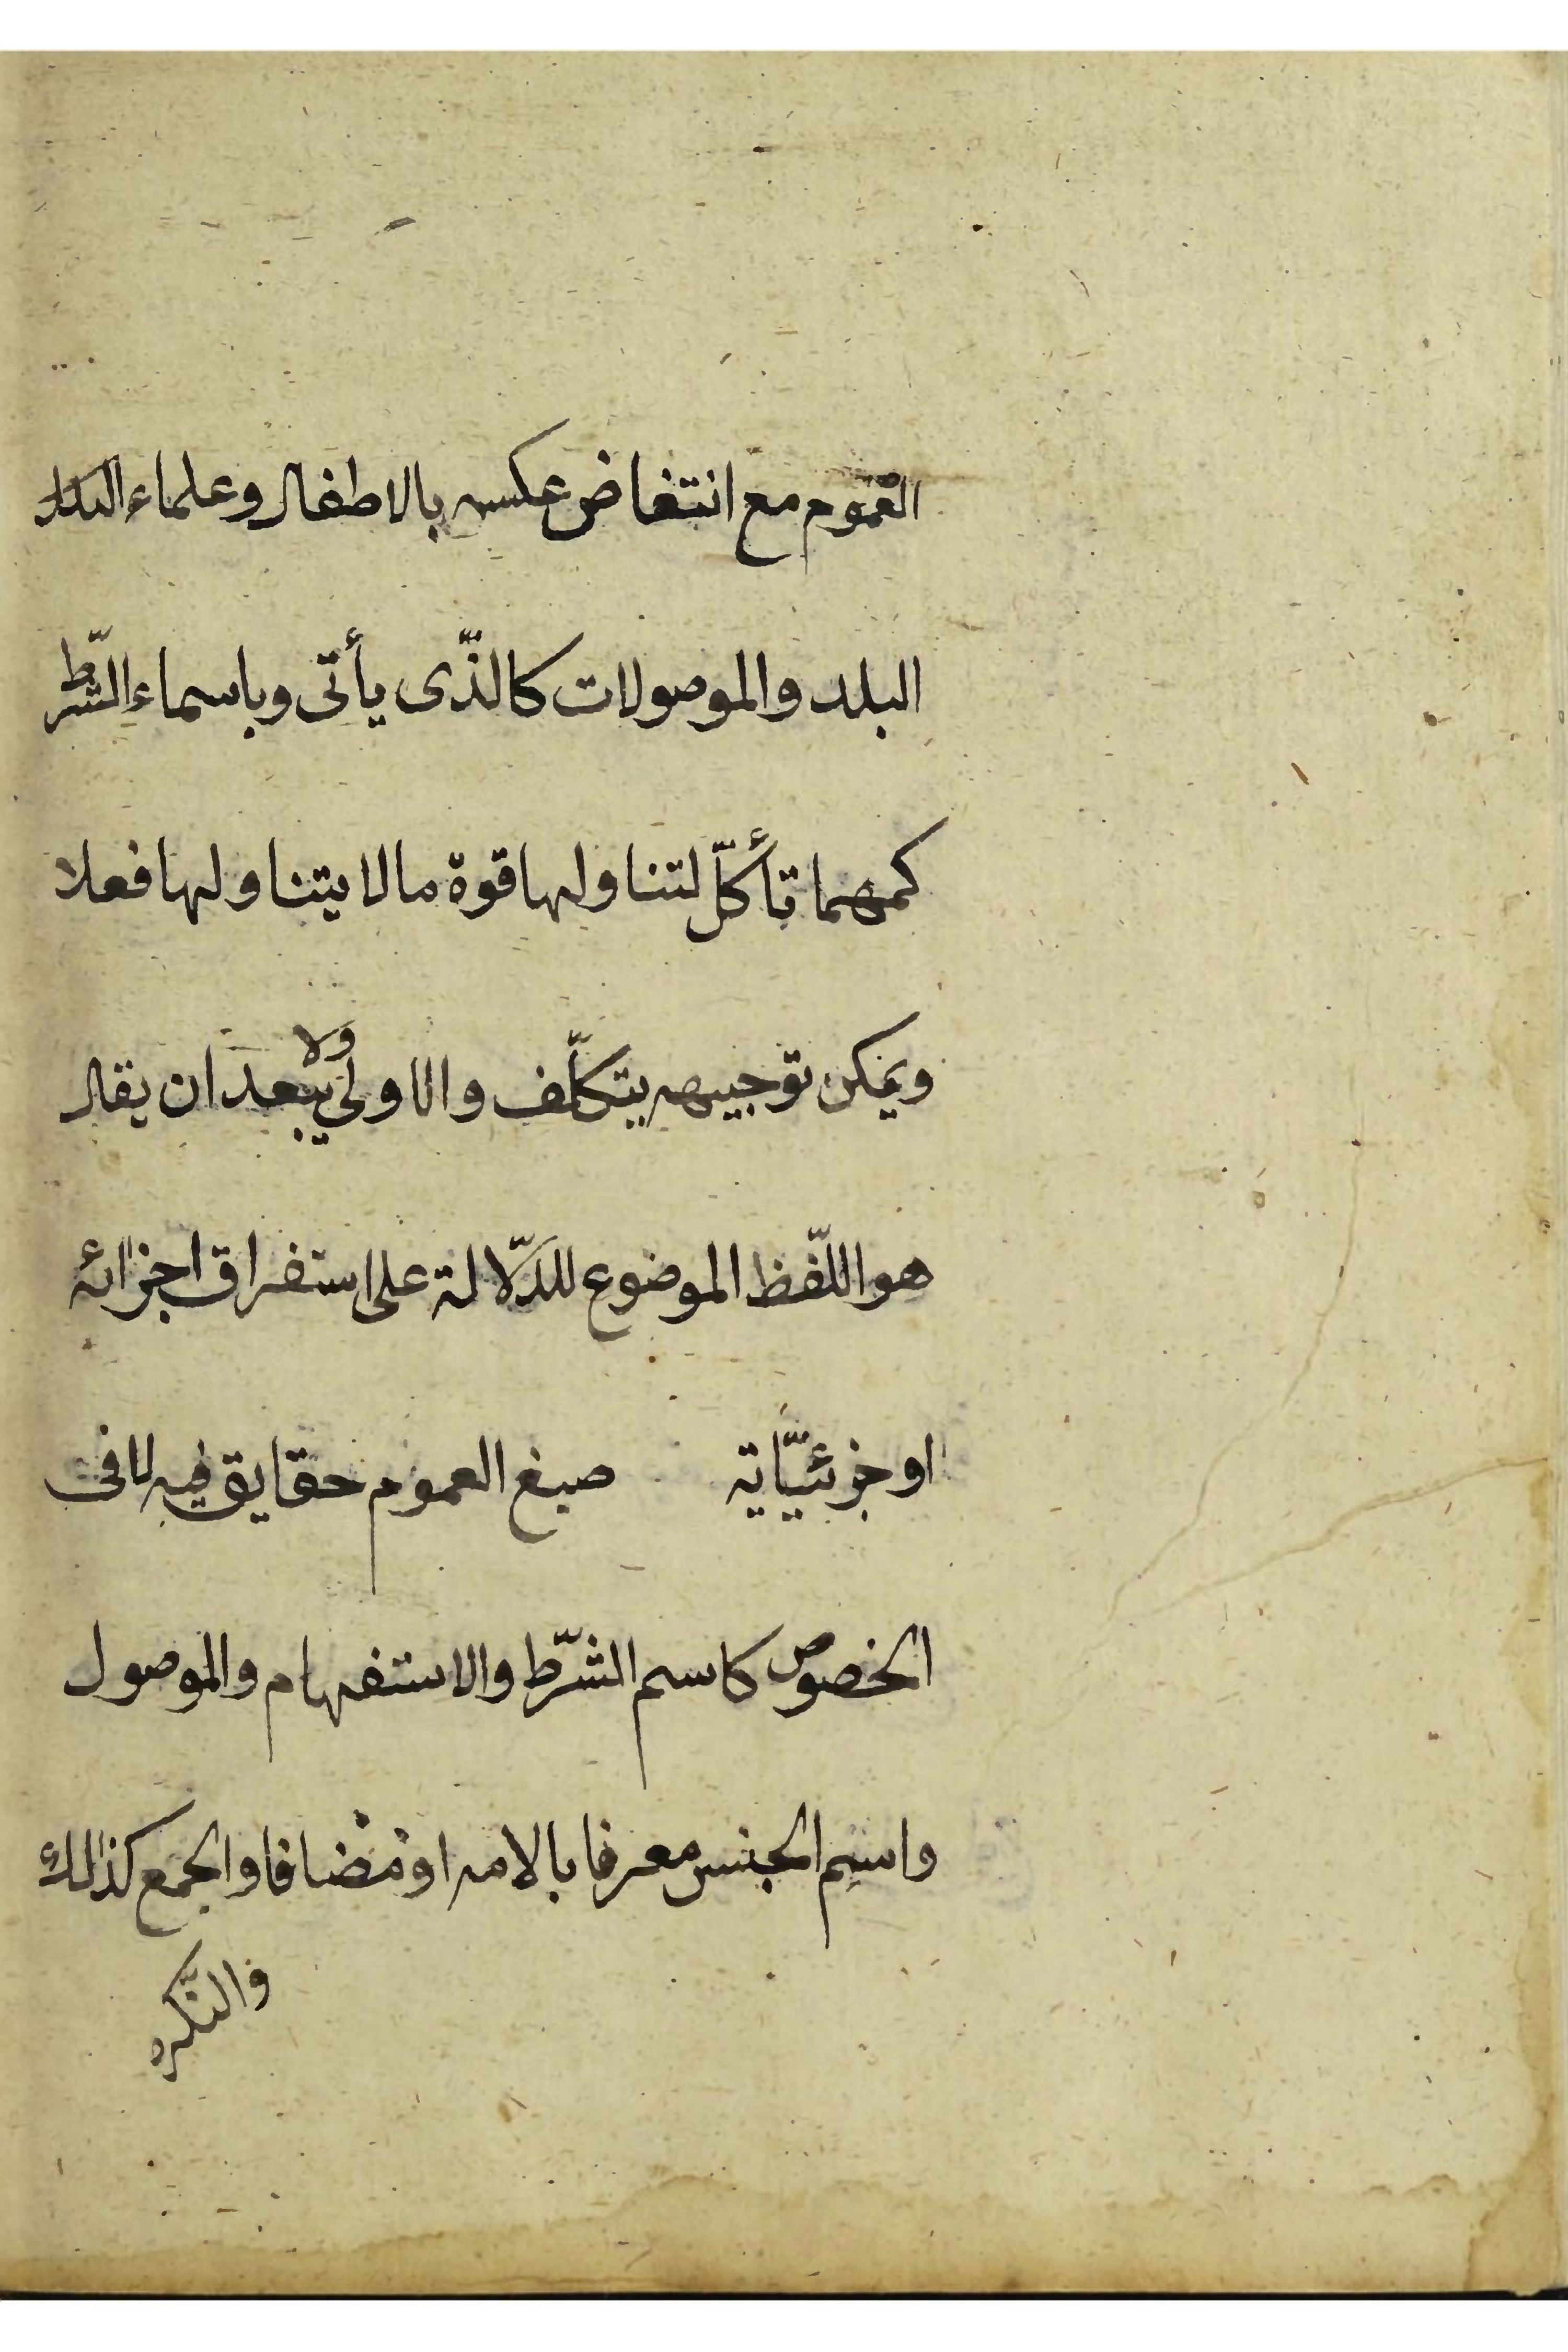 العموم مع انتغاض عكسه بالاطفال وعلماء البلد
البلد والموصولات كالّذى يأتى وباسماء الشّرط
كمهما تأكلّ لتناولها قوة ما لا يتناولها فعلا
ويمكن توجيهه بتكلّف والاولى ولا يبعد ان يقال
هو اللّفظ الموضوع للدّلالة على استغراق اجزائه
او جزئيّاته صيغ العموم حقايق فيه لا فى
الخصوص كاسم الشّرط والاستفهام والموصول
واسم الجنس معرفا بالامه او مضافا والجمع كذلك
والنّكره